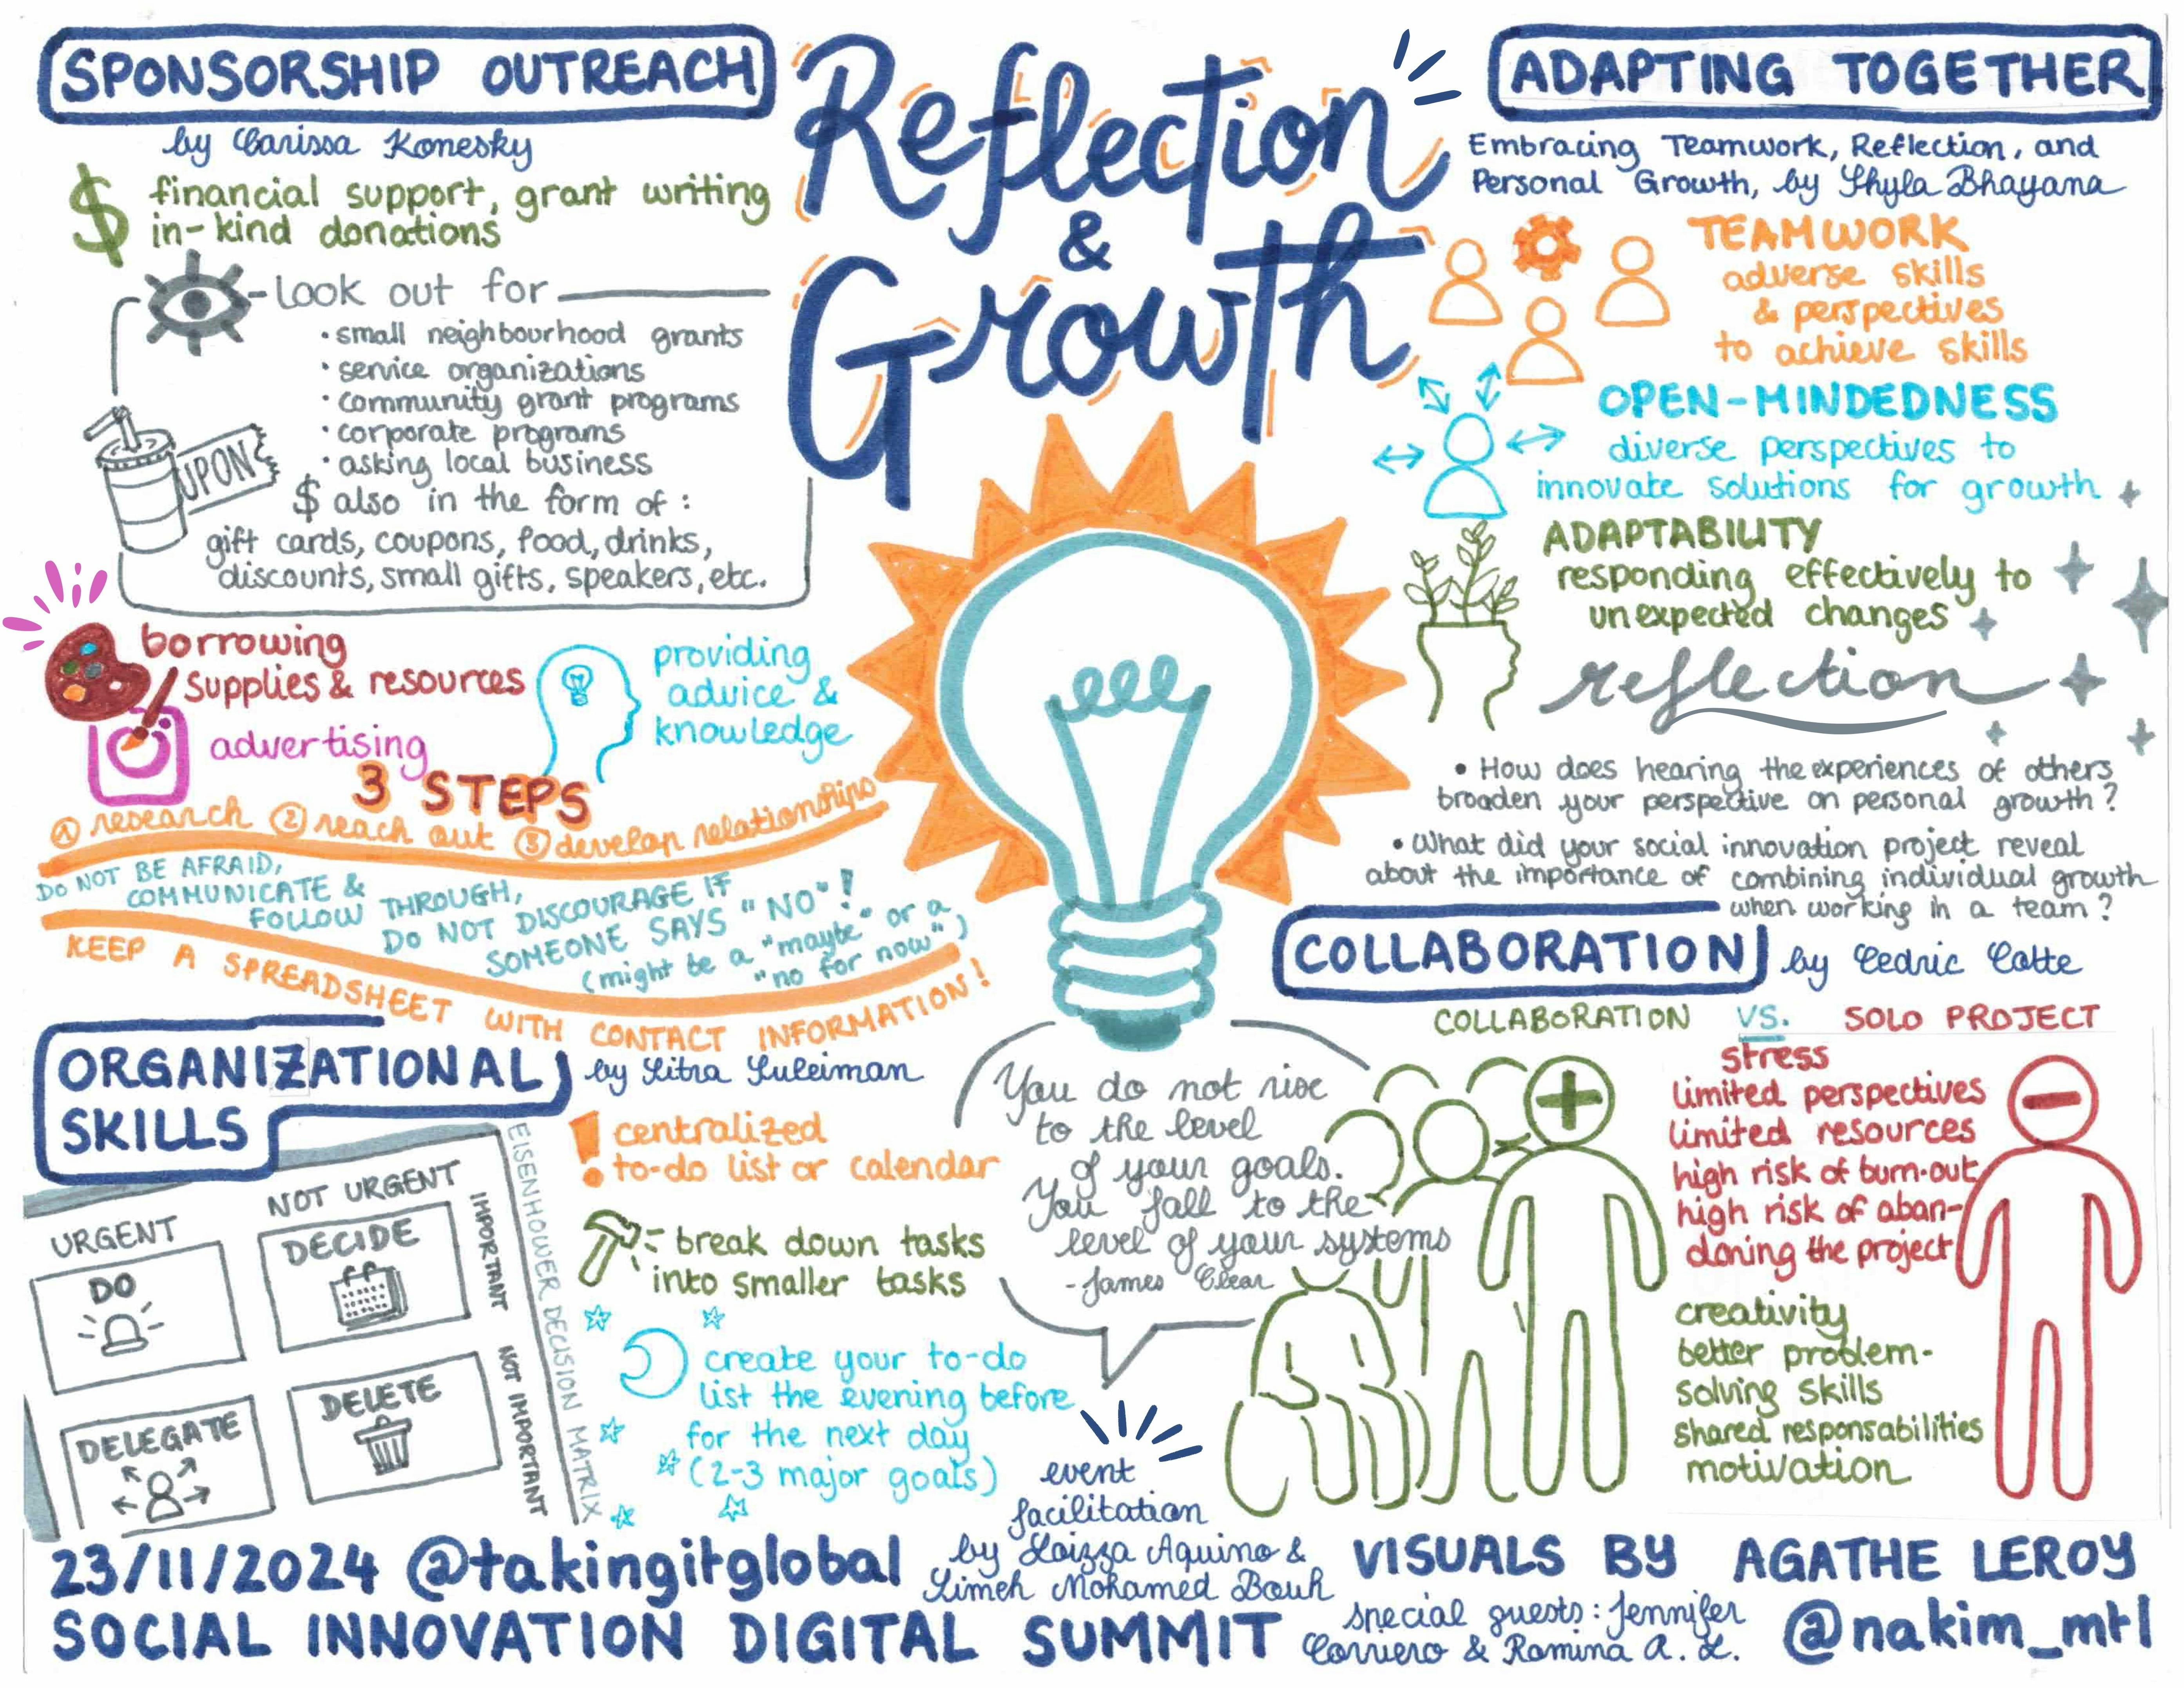 SPONSORSHIP OUTREACH
by Carissa Konesky
$ financial support, grant writing
in-kind donations
Look out for
• small neighbourhood grants
• service organizations
• community grant programs
• corporate programs
• asking local business
$ also in the form of :
gift cards, coupons, food, drinks,
discounts, small gifts, speakers, etc.
UPON
borrowing
supplies & resources
advertising
providing
advice &
knowledge
3 STEPS
① research ② reach out ③ develop relationships
DO NOT BE AFRAID,
COMMUNICATE &
FOLLOW THROUGH,
DO NOT DISCOURAGE IF
SOMEONE SAYS "NO"!
(might be a "maybe" or a
"no for now")
KEEP A SPREADSHEET WITH CONTACT INFORMATION!
Reflection
&
Growth
ADAPTING TOGETHER
Embracing Teamwork, Reflection, and
Personal Growth, by Shyla Bhayana
TEAMWORK
adverse skills
& perspectives
to achieve skills
OPEN-MINDEDNESS
diverse perspectives to
innovate solutions for growth
ADAPTABILITY
responding effectively to
unexpected changes
reflection
• How does hearing the experiences of others
broaden your perspective on personal growth?
• What did your social innovation project reveal
about the importance of combining individual growth
when working in a team?
COLLABORATION by Cedric Cotte
COLLABORATION VS. SOLO PROJECT
stress
limited perspectives
limited resources
high risk of burn-out
high risk of aban-
doning the project
creativity
better problem-
solving skills
shared responsabilities
motivation
ORGANIZATIONAL
SKILLS
by Sitra Suleiman
! centralized
to-do list or calendar
break down tasks
into smaller tasks
create your to-do
list the evening before
for the next day
(2-3 major goals)
EISENHOWER DECISION MATRIX
URGENT
NOT URGENT
IMPORTANT
NOT IMPORTANT
DO
DECIDE
DELEGATE
DELETE
You do not rise
to the level
of your goals.
You fall to the
level of your systems
- James Clear
event
facilitation
by Loizza Aquino &
Limeh Mohamed Bouh
23/11/2024 @takingitglobal
SOCIAL INNOVATION DIGITAL SUMMIT
VISUALS BY AGATHE LEROY
special guests : Jennifer
Corriero & Ramina A. L.
@nakim_mtl